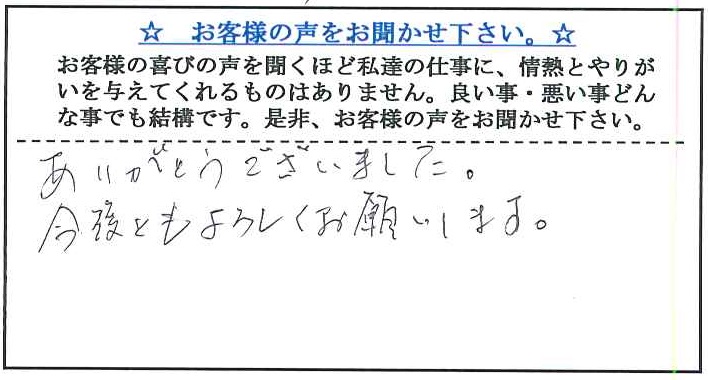 ☆ お客様の声をお聞かせ下さい。☆
お客様の喜びの声を聞くほど私達の仕事に、情熱とやりが
いを与えてくれるものはありません。良い事・悪い事どん
な事でも結構です。是非、お客様の声をお聞かせ下さい。
ありがとうございました。
今後ともよろしくお願いします。